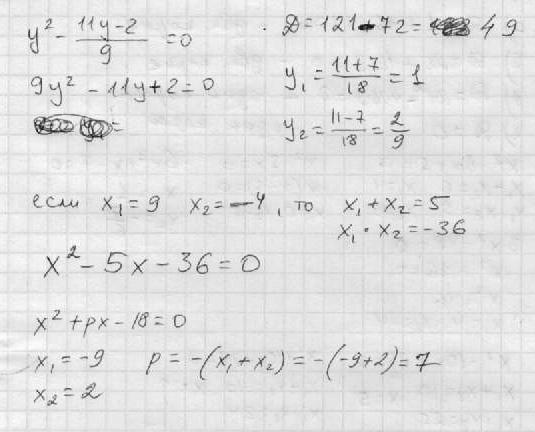 y² - (11y-2)/9 = 0
9y² - 11y + 2 = 0
D = 121 - 72 = 49
y₁ = (11+7)/18 = 1
y₂ = (11-7)/18 = 2/9
если x₁ = 9 x₂ = -4, то x₁ + x₂ = 5
x₁ · x₂ = -36
x² - 5x - 36 = 0
x² + px - 18 = 0
x₁ = -9 p = -(x₁ + x₂) = -(-9+2) = 7
x₂ = 2